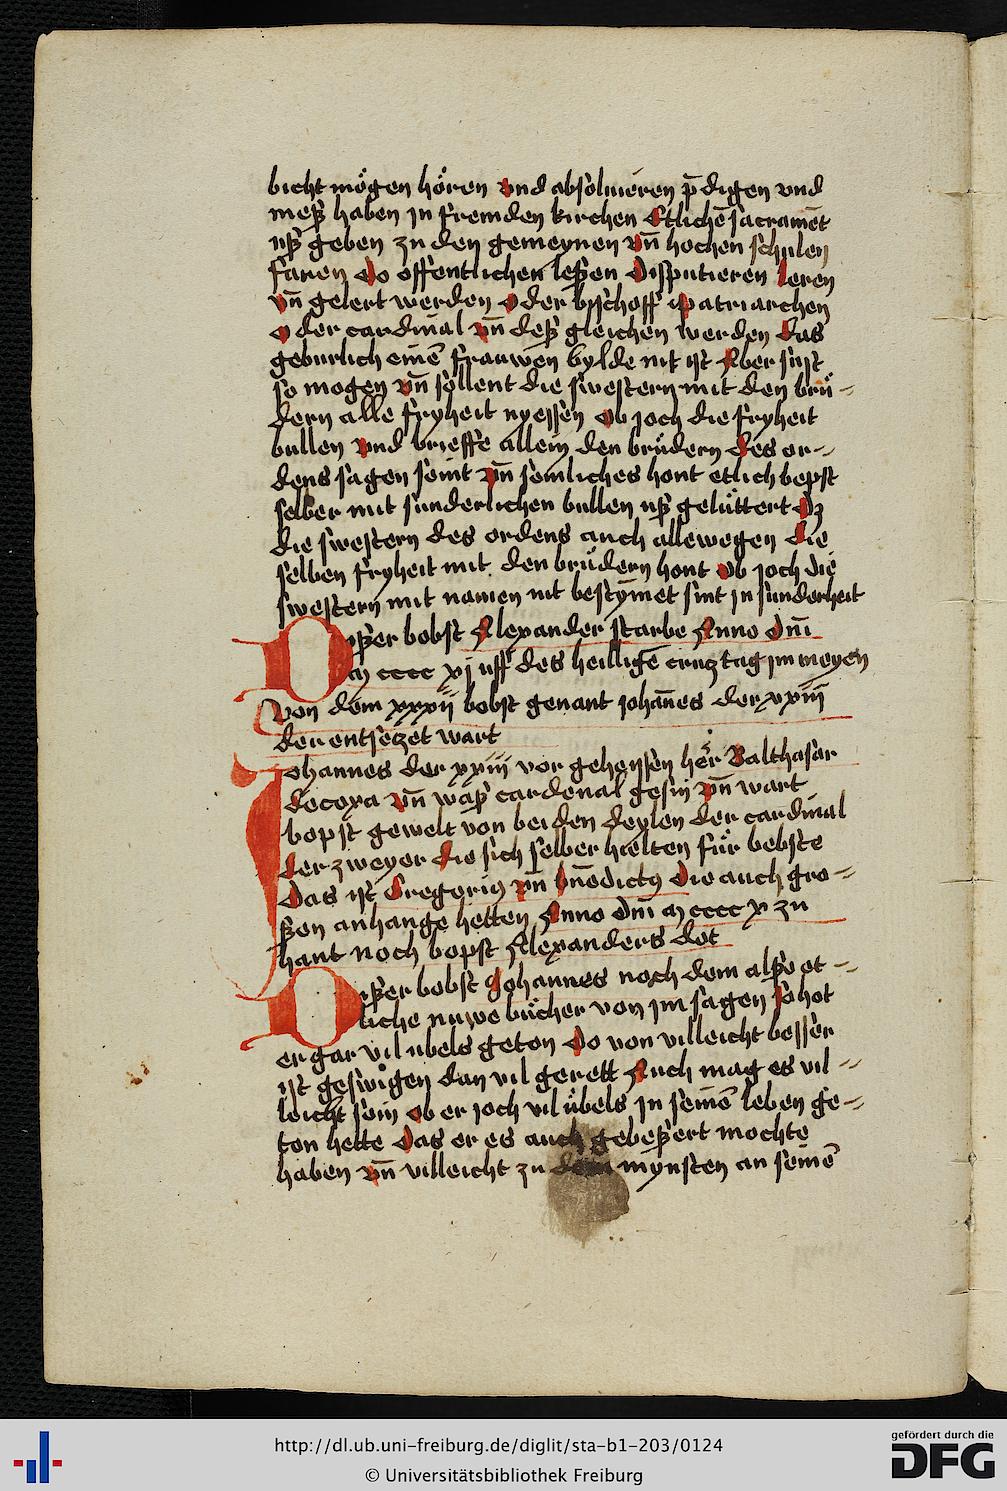 bicht mögen hören vnd absoluieren p̄digen vnd
meß haben jn fremden kirchen Etlichē sacramēt
uß geben zu den gemeynen vn̄ hochen schulen
faren do offentlichen leßen disputieren leren
vn̄ gelert werden oder byschoff patriarchen
oder cardinal vn̄ deß gleichen werden das
geburlich einē frauwen bylde nit ist Aber sust
so mogen vn̄ sollent die swestern mit den brü-
dern alle fryheit nyessen ob joch die fryheit
bullen vnd brieffe allein den brüdern des or-
dens sagen seint vn̄ semliches hont etlich bepst
selber mit sunderlichen bullen uß gelüttert dz
die swestern des ordens auch allewegen die
selben fryheit mit den brüdern hont ob joch die
swestern mit namen nit bestymet sint jn sunderheit
Dißer bobst Alexander starbe Anno dn̄i
m cccc xj uff des heiligē crutz tag jm meyen
Von dem xxxij bobst genant johan̄es der xxiij
der entsetzet wart
Johannes der xxiij vor geheyssen her Balthasar
decoxa vn̄ waß cardenal gesin vn̄ wart
bopst gewelt von beiden deylen der cardinal
der zweyer die sich selber hielten für bebste
das ist Gregoriꝰ vn̄ bn̄edictꝰ die auch gro-
ßen anhange hetten Anno dn̄i m cccc x zu
hant noch bopst Alexanders dot
Dißer bobst Johannes noch dem alßo et-
liche nuwe bücher von jm sagen so hot
er gar vil ubels geton do von villeicht besser
ist geswigen dan vil gerett Auch mag es vil-
leicht sein ob er joch vil übels jn seinē leben ge-
ton hette das er es auch gebeßert mochte
haben vn̄ villeicht zu dem mynsten an seinē
http://dl.ub.uni-freiburg.de/diglit/sta-b1-203/0124
© Universitätsbibliothek Freiburg
gefördert durch die
DFG